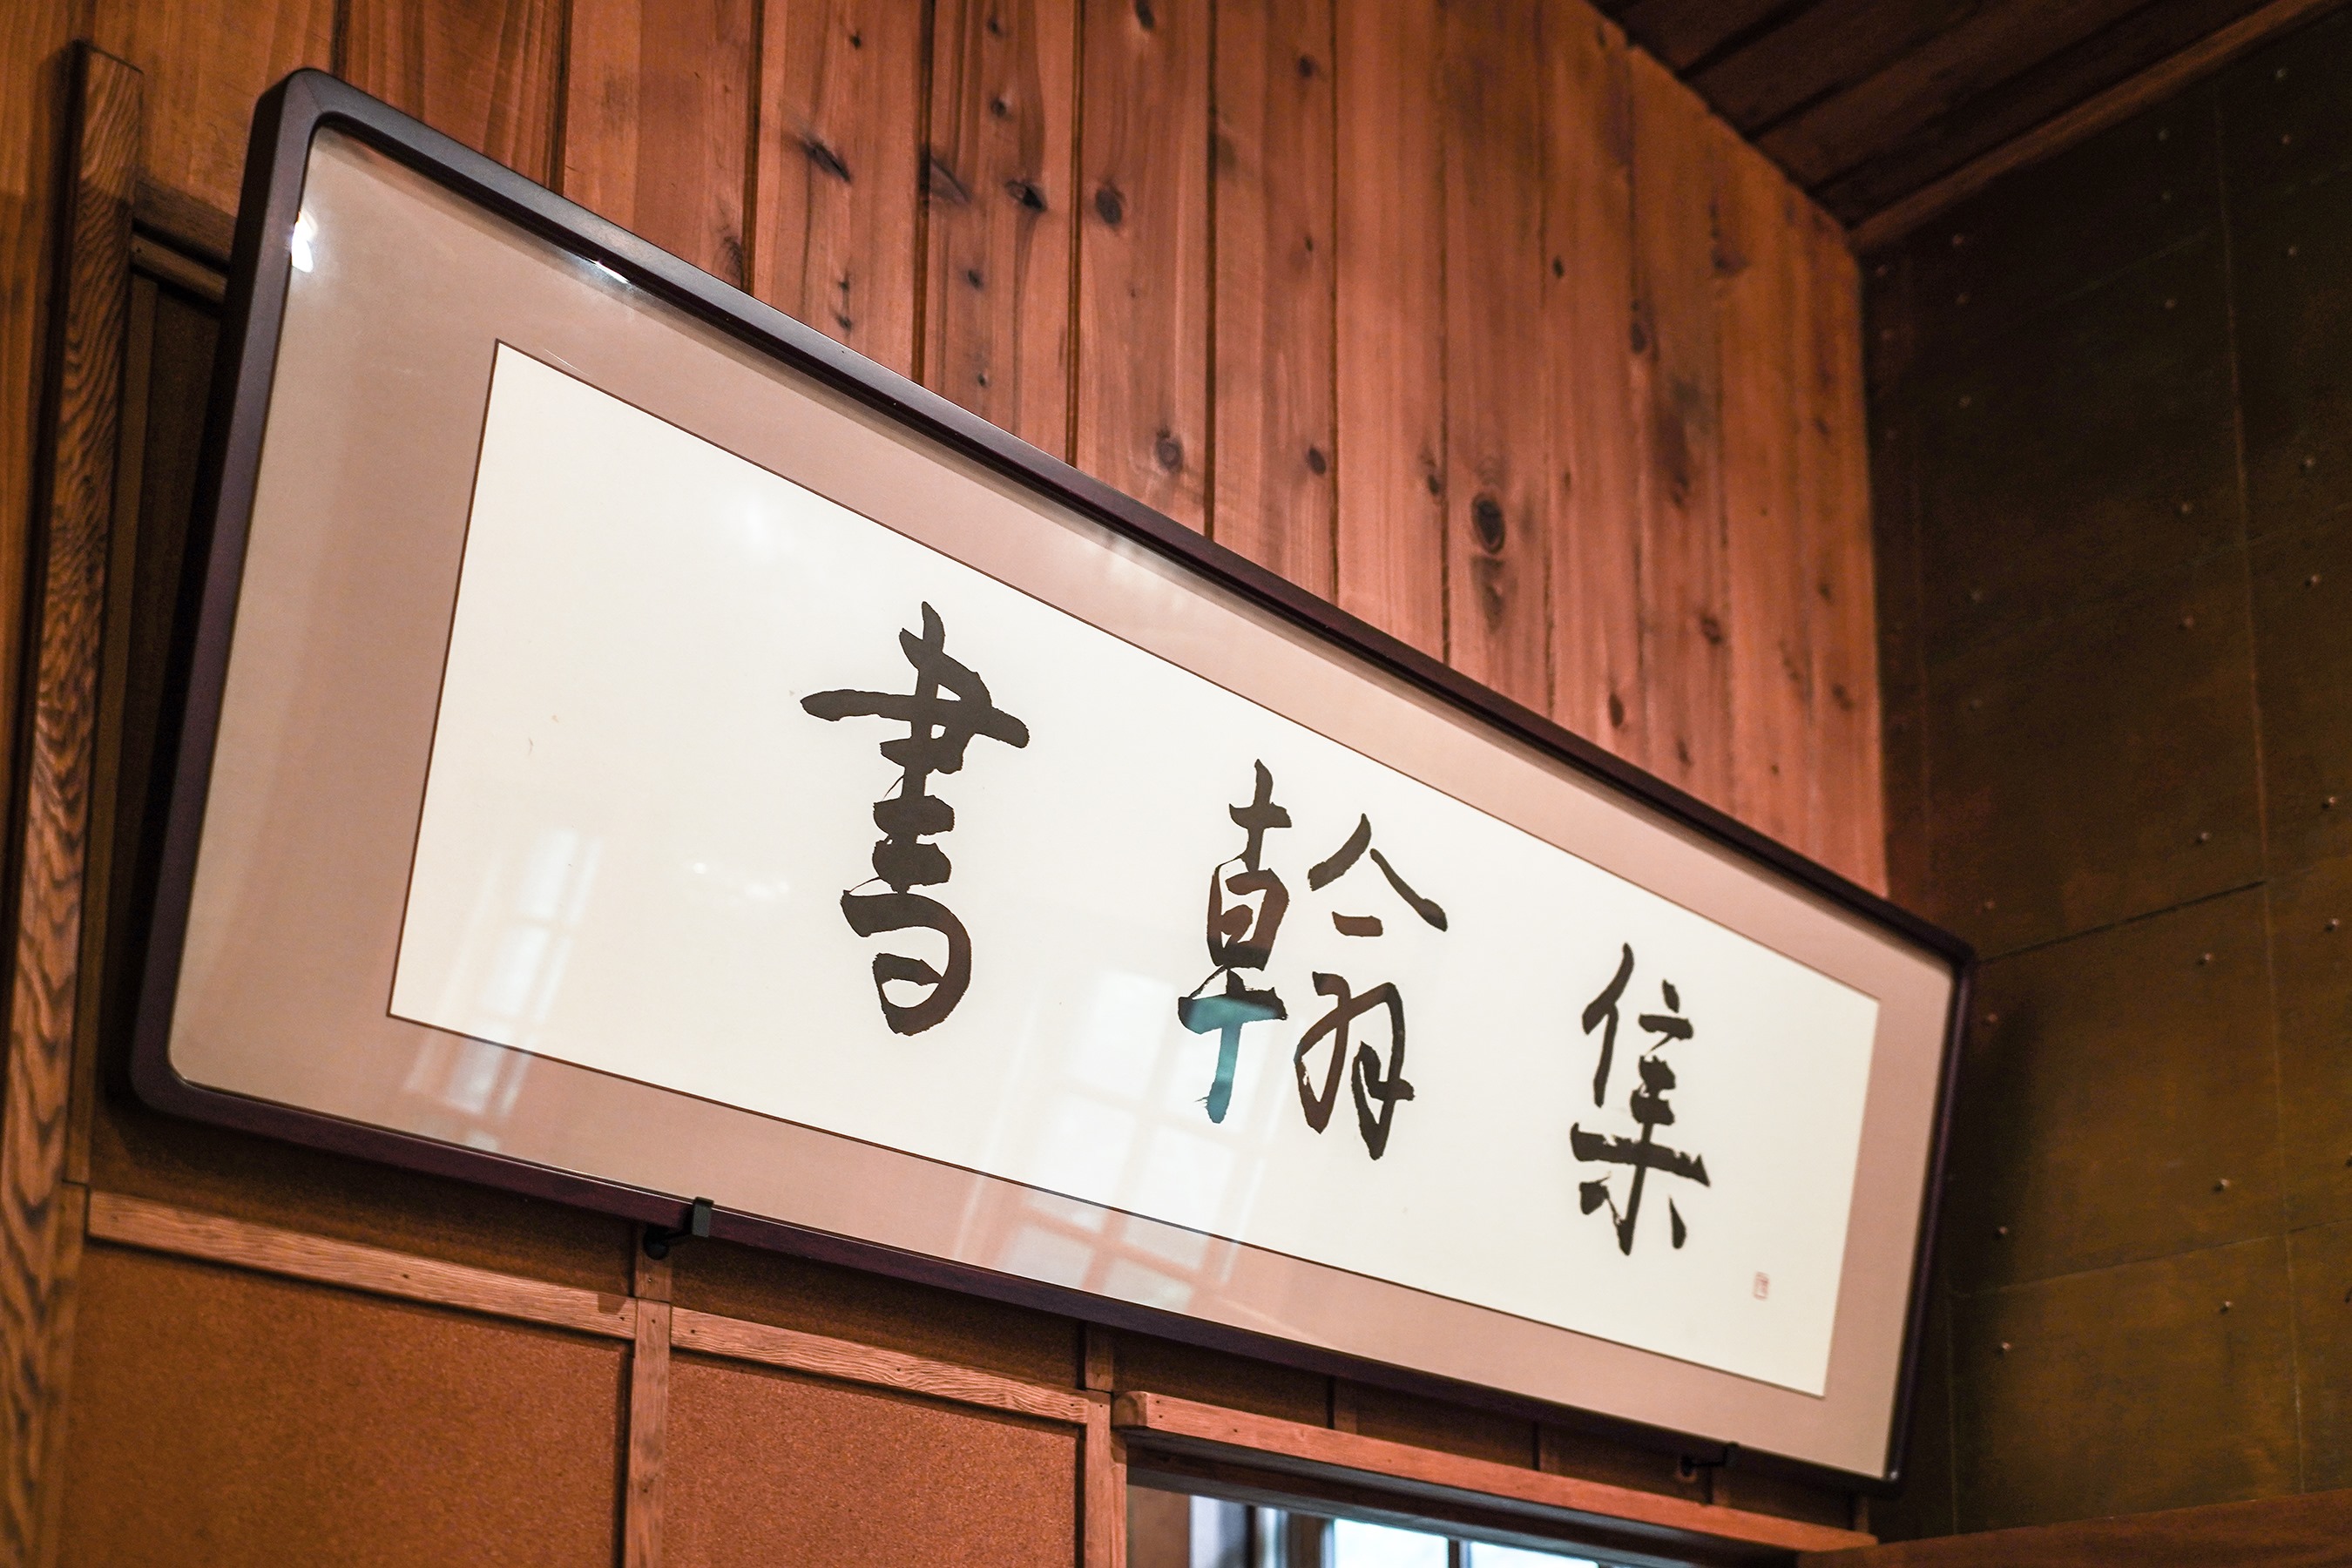 書翰集